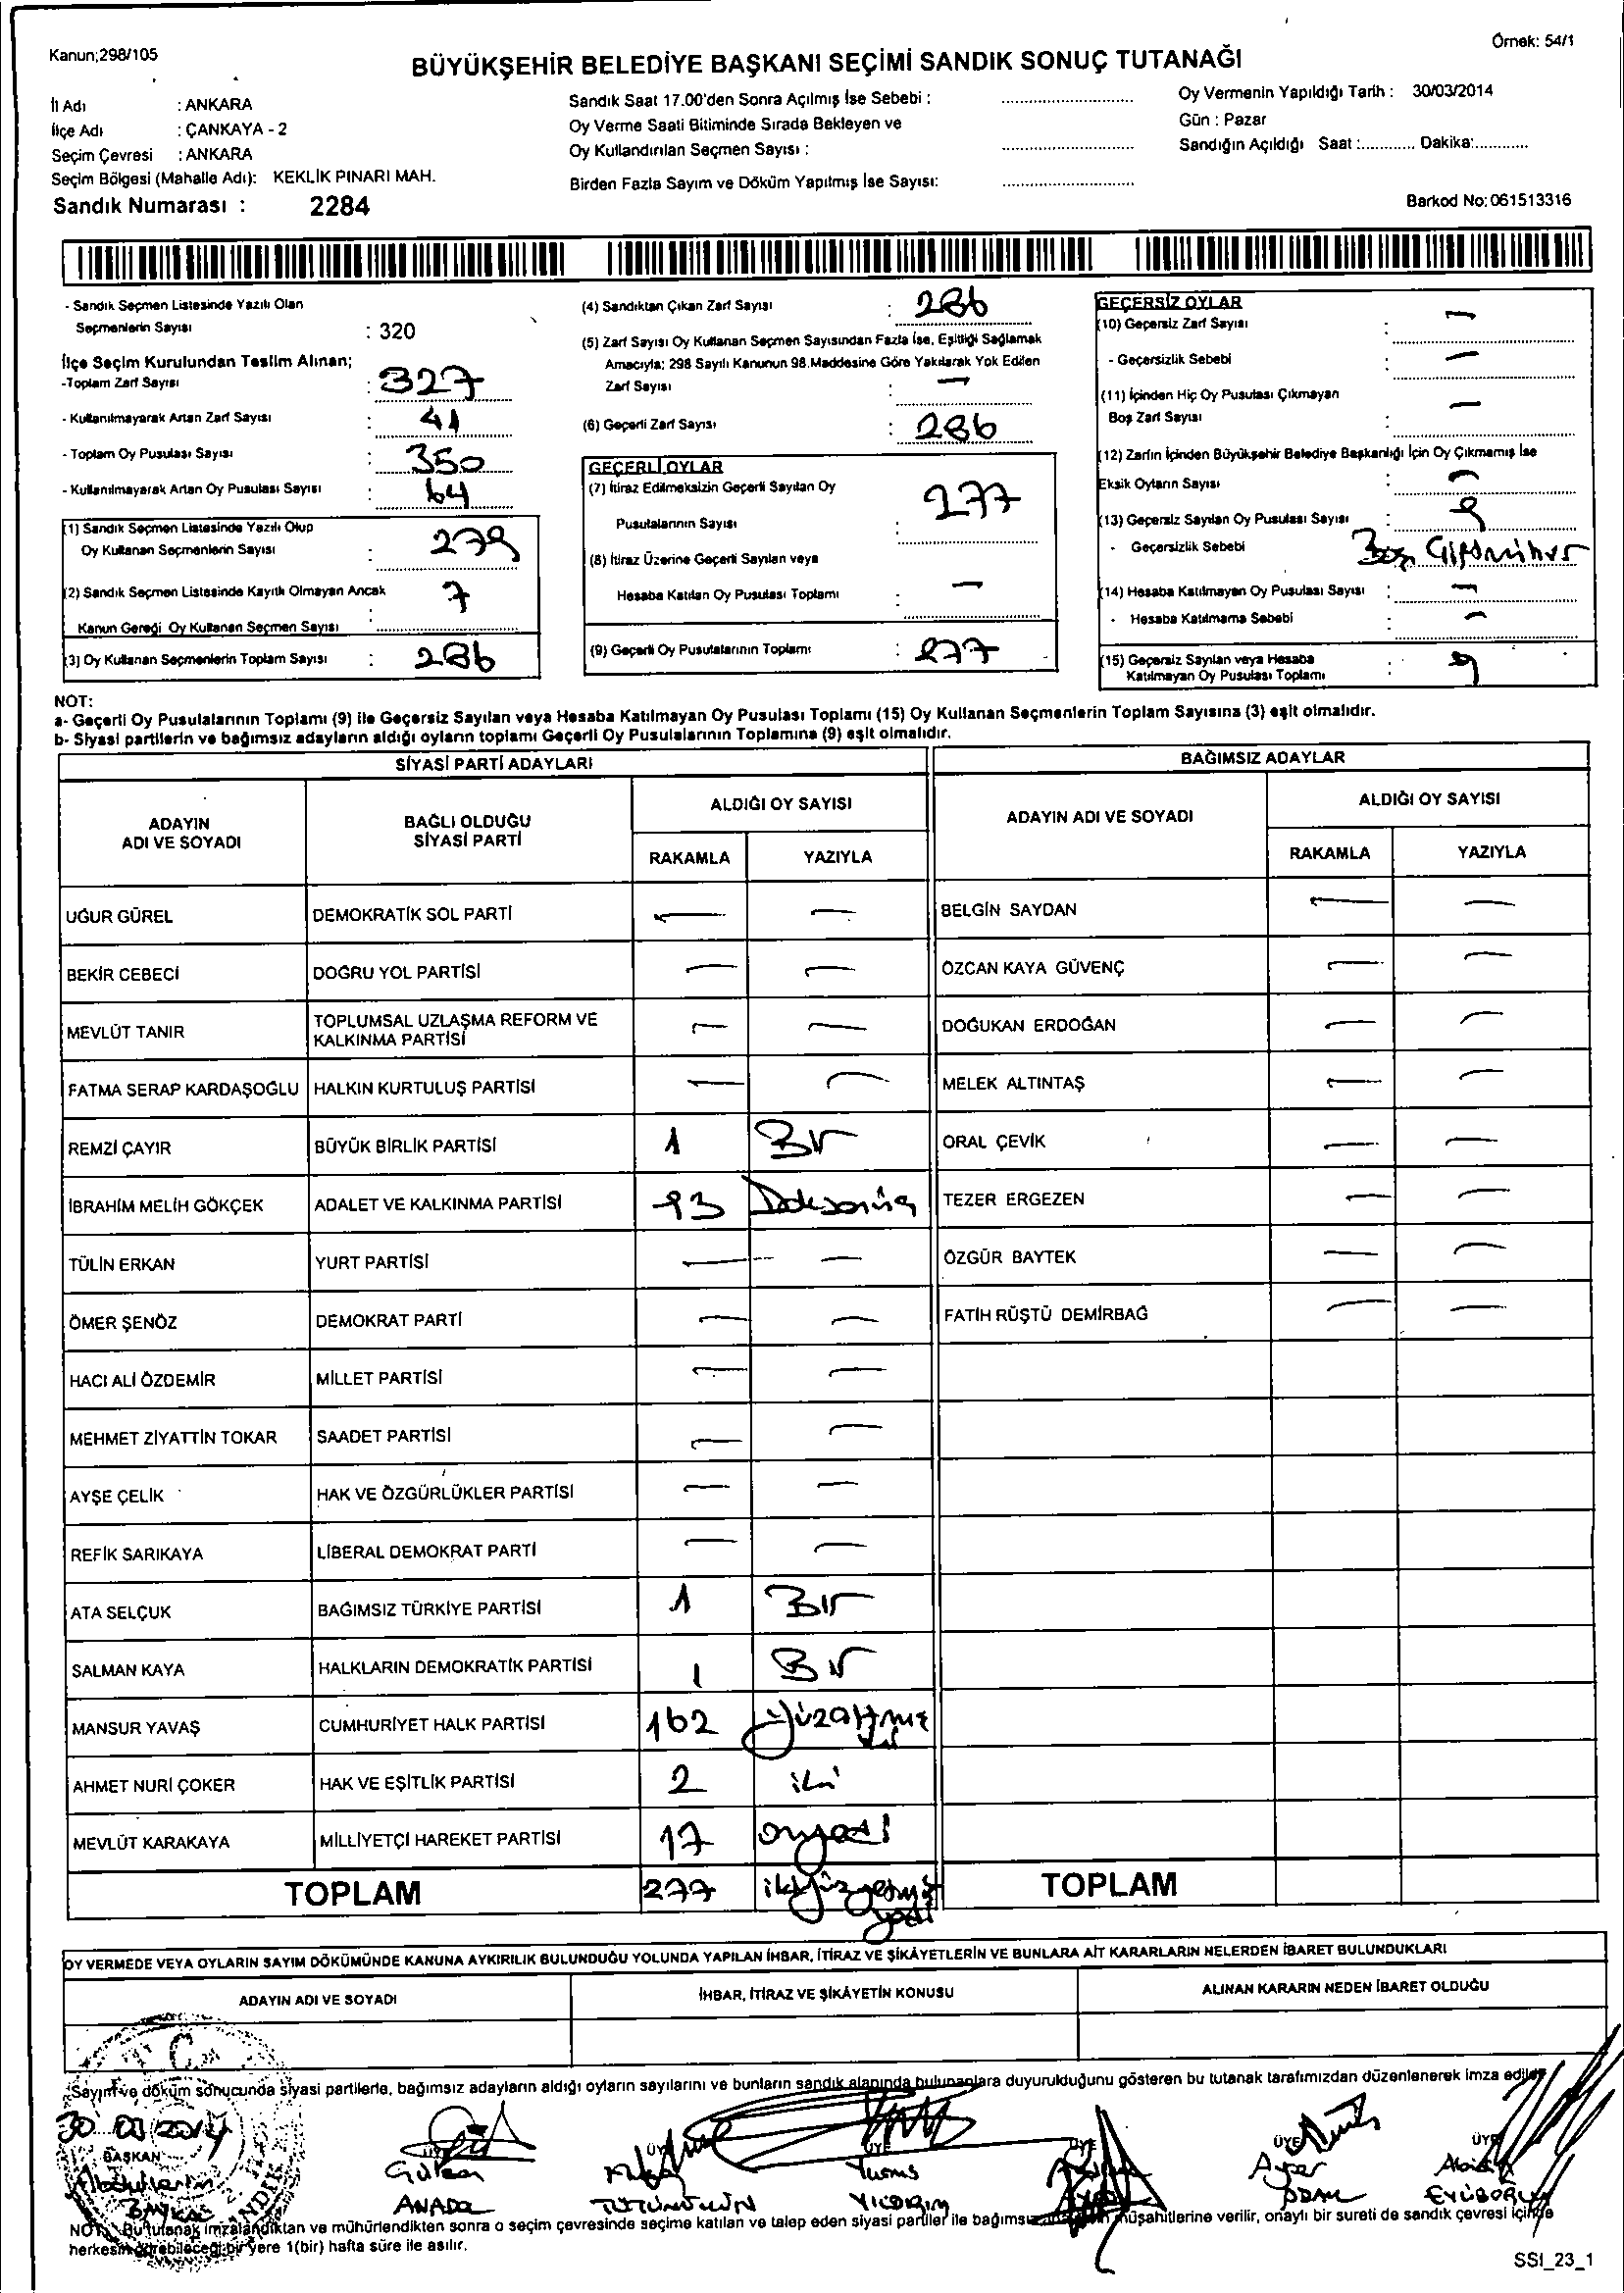 Kanun;298/105
Örnek: 54/1
BÜYÜKŞEHİR BELEDİYE BAŞKANI SEÇİMİ SANDIK SONUÇ TUTANAĞI
İl Adı : ANKARA
İlçe Adı : ÇANKAYA - 2
Seçim Çevresi : ANKARA
Seçim Bölgesi (Mahalle Adı): KEKLİK PINARI MAH.
Sandık Numarası : 2284
Sandık Saat 17.00'den Sonra Açılmış İse Sebebi :
Oy Verme Saati Bitiminde Sırada Bekleyen ve
Oy Kullandırılan Seçmen Sayısı :
Birden Fazla Sayım ve Döküm Yapılmış İse Sayısı:
Oy Vermenin Yapıldığı Tarih : 30/03/2014
Gün : Pazar
Sandığın Açıldığı Saat :............ Dakika:............
Barkod No: 061513316
- Sandık Seçmen Listesinde Yazılı Olan
Seçmenlerin Sayısı : 320
İlçe Seçim Kurulundan Teslim Alınan;
-Toplam Zarf Sayısı : 327
- Kullanılmayarak Artan Zarf Sayısı : 41
- Toplam Oy Pusulası Sayısı : 350
- Kullanılmayarak Artan Oy Pusulası Sayısı : 64
(1) Sandık Seçmen Listesinde Yazılı Olup
Oy Kullanan Seçmenlerin Sayısı : 279
(2) Sandık Seçmen Listesinde Kayıtlı Olmayan Ancak
Kanun Gereği Oy Kullanan Seçmen Sayısı : 7
(3) Oy Kullanan Seçmenlerin Toplam Sayısı : 286
(4) Sandıktan Çıkan Zarf Sayısı : 286
(5) Zarf Sayısı Oy Kullanan Seçmen Sayısından Fazla İse, Eşitliği Sağlamak
Amacıyla; 298 Sayılı Kanunun 98.Maddesine Göre Yakılarak Yok Edilen
Zarf Sayısı : —
(6) Geçerli Zarf Sayısı : 286
GEÇERLİ OYLAR
(7) İtiraz Edilmeksizin Geçerli Sayılan Oy
Pusulalarının Sayısı : 277
(8) İtiraz Üzerine Geçerli Sayılan veya
Hesaba Katılan Oy Pusulası Toplamı : —
(9) Geçerli Oy Pusulalarının Toplamı : 277
GEÇERSİZ OYLAR
(10) Geçersiz Zarf Sayısı : —
- Geçersizlik Sebebi : —
(11) İçinden Hiç Oy Pusulası Çıkmayan
Boş Zarf Sayısı : —
(12) Zarfın İçinden Büyükşehir Belediye Başkanlığı İçin Oy Çıkmamış İse
Eksik Oyların Sayısı : —
(13) Geçersiz Sayılan Oy Pusulası Sayısı : 9
- Geçersizlik Sebebi
(14) Hesaba Katılmayan Oy Pusulası Sayısı : —
- Hesaba Katılmama Sebebi : —
(15) Geçersiz Sayılan veya Hesaba
Katılmayan Oy Pusulası Toplamı : 9
NOT:
a- Geçerli Oy Pusulalarının Toplamı (9) ile Geçersiz Sayılan veya Hesaba Katılmayan Oy Pusulası Toplamı (15) Oy Kullanan Seçmenlerin Toplam Sayısına (3) eşit olmalıdır.
b- Siyasi partilerin ve bağımsız adayların aldığı oyların toplamı Geçerli Oy Pusulalarının Toplamına (9) eşit olmalıdır.
SİYASİ PARTİ ADAYLARI
ADAYIN ADI VE SOYADI
BAĞLI OLDUĞU SİYASİ PARTİ
ALDIĞI OY SAYISI
RAKAMLA YAZIYLA
UĞUR GÜREL DEMOKRATİK SOL PARTİ — —
BEKİR CEBECİ DOĞRU YOL PARTİSİ — —
MEVLÜT TANIR TOPLUMSAL UZLAŞMA REFORM VE
KALKINMA PARTİSİ — —
FATMA SERAP KARDAŞOĞLU HALKIN KURTULUŞ PARTİSİ — —
REMZİ ÇAYIR BÜYÜK BİRLİK PARTİSİ 1 Bir
İBRAHİM MELİH GÖKÇEK ADALET VE KALKINMA PARTİSİ 93 Doksanüç
TÜLİN ERKAN YURT PARTİSİ — —
ÖMER ŞENÖZ DEMOKRAT PARTİ — —
HACI ALİ ÖZDEMİR MİLLET PARTİSİ — —
MEHMET ZİYATTİN TOKAR SAADET PARTİSİ — —
AYŞE ÇELİK HAK VE ÖZGÜRLÜKLER PARTİSİ — —
REFİK SARIKAYA LİBERAL DEMOKRAT PARTİ — —
ATA SELÇUK BAĞIMSIZ TÜRKİYE PARTİSİ 1 Bir
SALMAN KAYA HALKLARIN DEMOKRATİK PARTİSİ 1 Bir
MANSUR YAVAŞ CUMHURİYET HALK PARTİSİ 162 yüzaltmış iki
AHMET NURİ ÇOKER HAK VE EŞİTLİK PARTİSİ 2 iki
MEVLÜT KARAKAYA MİLLİYETÇİ HAREKET PARTİSİ 17 onyedi
TOPLAM 277 ikiyüzyetmiş yedi
BAĞIMSIZ ADAYLAR
ADAYIN ADI VE SOYADI
ALDIĞI OY SAYISI
RAKAMLA YAZIYLA
BELGİN SAYDAN — —
ÖZCAN KAYA GÜVENÇ — —
DOĞUKAN ERDOĞAN — —
MELEK ALTINTAŞ — —
ORAL ÇEVİK — —
TEZER ERGEZEN — —
ÖZGÜR BAYTEK — —
FATİH RÜŞTÜ DEMİRBAĞ — —
TOPLAM
OY VERMEDE VEYA OYLARIN SAYIM DÖKÜMÜNDE KANUNA AYKIRILIK BULUNDUĞU YOLUNDA YAPILAN İHBAR, İTİRAZ VE ŞİKÂYETLERİN VE BUNLARA AİT KARARLARIN NELERDEN İBARET BULUNDUKLARI
ADAYIN ADI VE SOYADI
İHBAR, İTİRAZ VE ŞİKÂYETİN KONUSU
ALINAN KARARIN NEDEN İBARET OLDUĞU
T.C.
Sayım ve döküm sonucunda siyasi partilerle, bağımsız adayların aldığı oyların sayılarını ve bunların sandık alanında bulunanlara duyurulduğunu gösteren bu tutanak tarafımızdan düzenlenerek imza edildi.
30 03 2014
BAŞKAN ÜYE ÜYE ÜYE ÜYE ÜYE ÜYE
Yunus
YILDIRIM
NOT: Bu tutanak imzalandıktan ve mühürlendikten sonra o seçim çevresinde seçime katılan ve talep eden siyasi partiler ile bağımsız müşahitlerine verilir, onaylı bir sureti de sandık çevresi içinde
herkesin görebileceği bir yere 1(bir) hafta süre ile asılır.
SSI_23_1